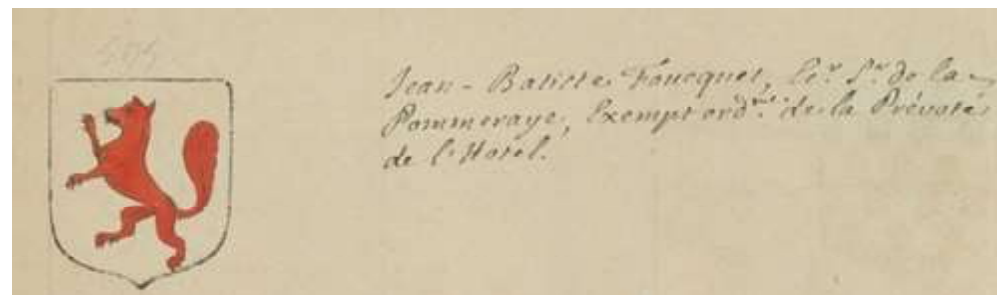 Jean-Batiste Foucquet, Ec.r S.r de la
Pommeraye, Exempt ord.re de la Prévoté
de l'Hotel.